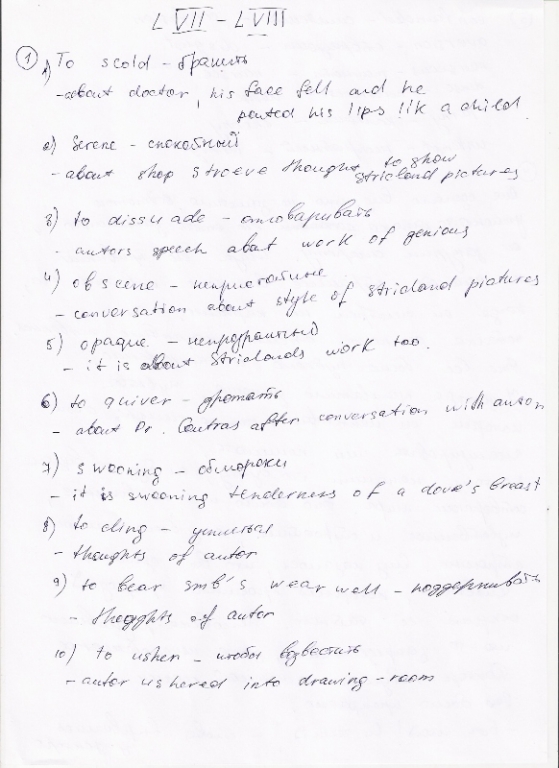 L VII - L VIII
① 1) To scold - бранить
- about doctor, his face fell and he
pouted his lips like a child.
2) Serene - спокойный
- about shop stroeve thought to show
stricland pictures
3) to dissuade - отговаривать
- autors speech abat work of genious
4) obscene - непристойные
- conversation about style of Stricland pictures
5) opaque - непрозрачный
- it is about Striclands work too.
6) to quiver - дрожать
- about Dr. Coutras after conversation with autor
7) swooning - обмороки
- it is swooning tenderness of a dove's breast
8) to cling -
- thoughts of autor
9) to bear smb's wear well - поддерживать
- thoughts of autor
10) to usher - чтобы возвестить
- autor ushered into drawing - room